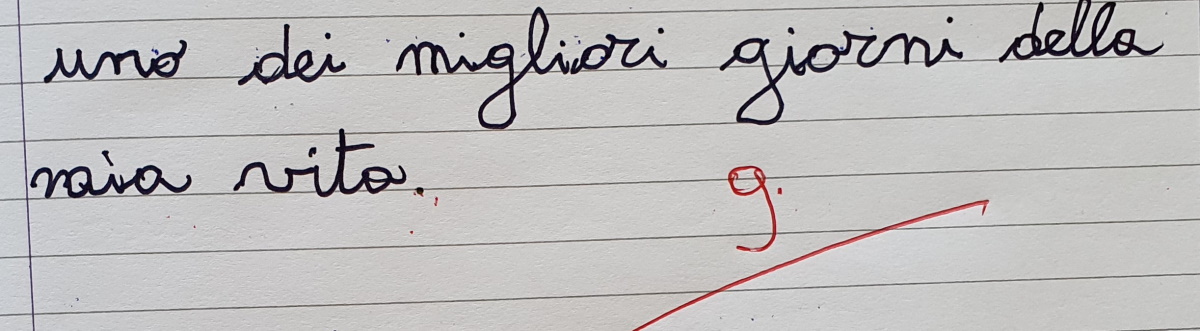 uno dei migliori giorni della
mia vita.
9.